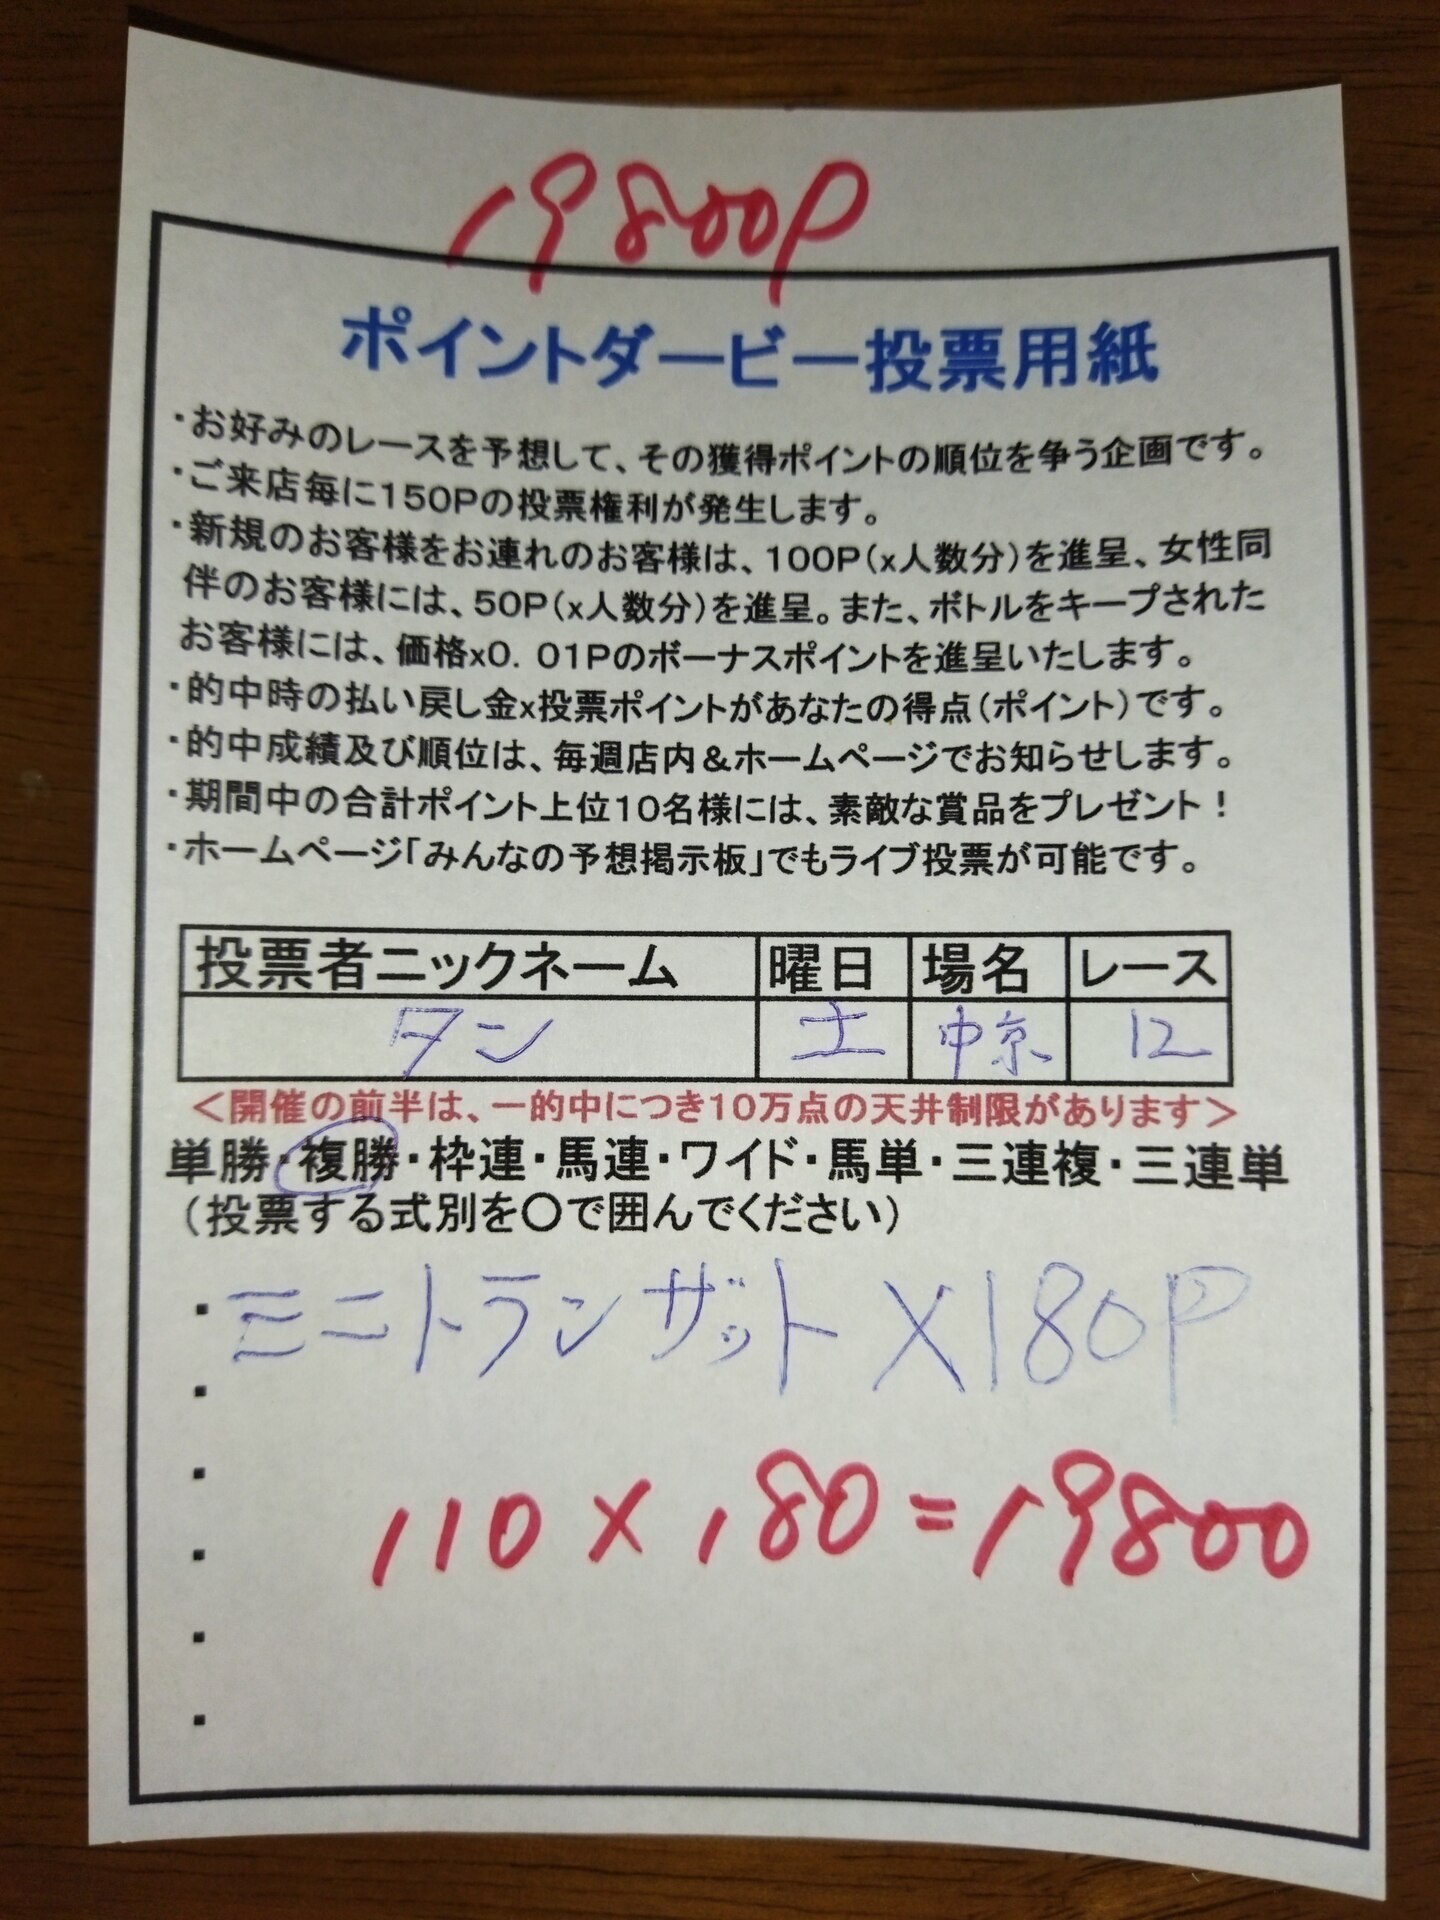 19800P
ポイントダービー投票用紙
・お好みのレースを予想して、その獲得ポイントの順位を争う企画です。
・ご来店毎に150Pの投票権利が発生します。
・新規のお客様をお連れのお客様は、100P(x人数分)を進呈、女性同
伴のお客様には、50P(x人数分)を進呈。また、ボトルをキープされた
お客様には、価格x0.01Pのボーナスポイントを進呈いたします。
・的中時の払い戻し金x投票ポイントがあなたの得点(ポイント)です。
・的中成績及び順位は、毎週店内&ホームページでお知らせします。
・期間中の合計ポイント上位10名様には、素敵な賞品をプレゼント!
・ホームページ「みんなの予想掲示板」でもライブ投票が可能です。
投票者ニックネーム 曜日 場名 レース
タン 土 中京 12
<開催の前半は、一的中につき10万点の天井制限があります>
単勝・複勝・枠連・馬連・ワイド・馬単・三連複・三連単
(投票する式別を〇で囲んでください)
・ミニトランザット X180P
・
・
110 × 180 = 19800
・
・
・